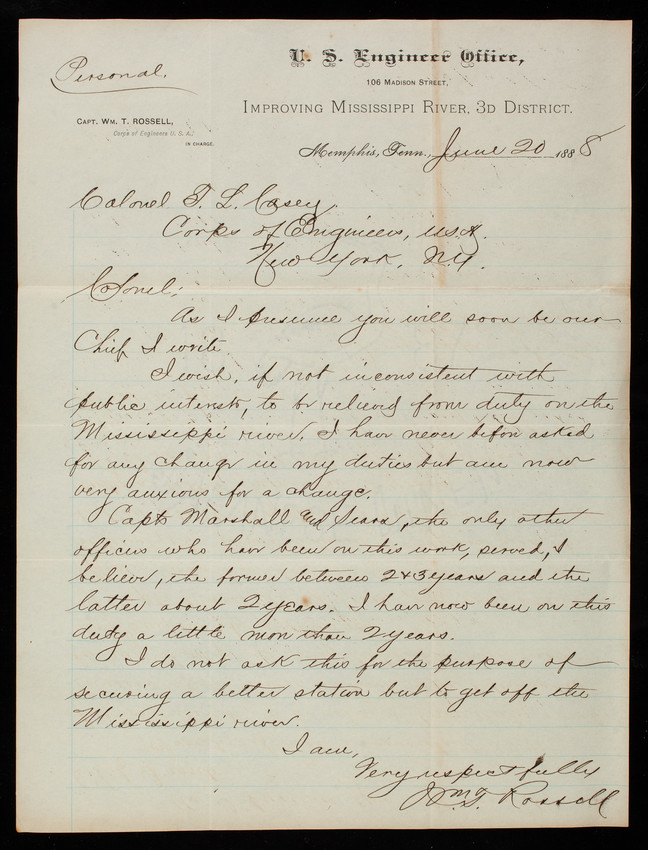 Personal.
U. S. Engineer Office,
106 Madison Street,
Improving Mississippi River, 3d District.
Capt. Wm. T. Rossell,
Corps of Engineers U. S. A.,
in charge.
Memphis, Tenn., June 20 1888
Colonel T. L. Casey.
Corps of Engineers, U.S.A.
New York, N.Y.
Colonel;
As I presume you will soon be our
Chief I write.
I wish, if not inconsistent with
public interests, to be relieved from duty on the
Mississippi river. I have never before asked
for any change in my duties but am now
very anxious for a change.
Capts Marshall and Sears, the only other
officers who have been on this work, served, I
believe, the former between 2 & 3 years and the
latter about 2 years. I have now been on this
duty a little more than 2 years.
I do not ask this for the purpose of
securing a better station but to get off the
Mississippi river.
I am,
Very respectfully
Wm. T. Rossell